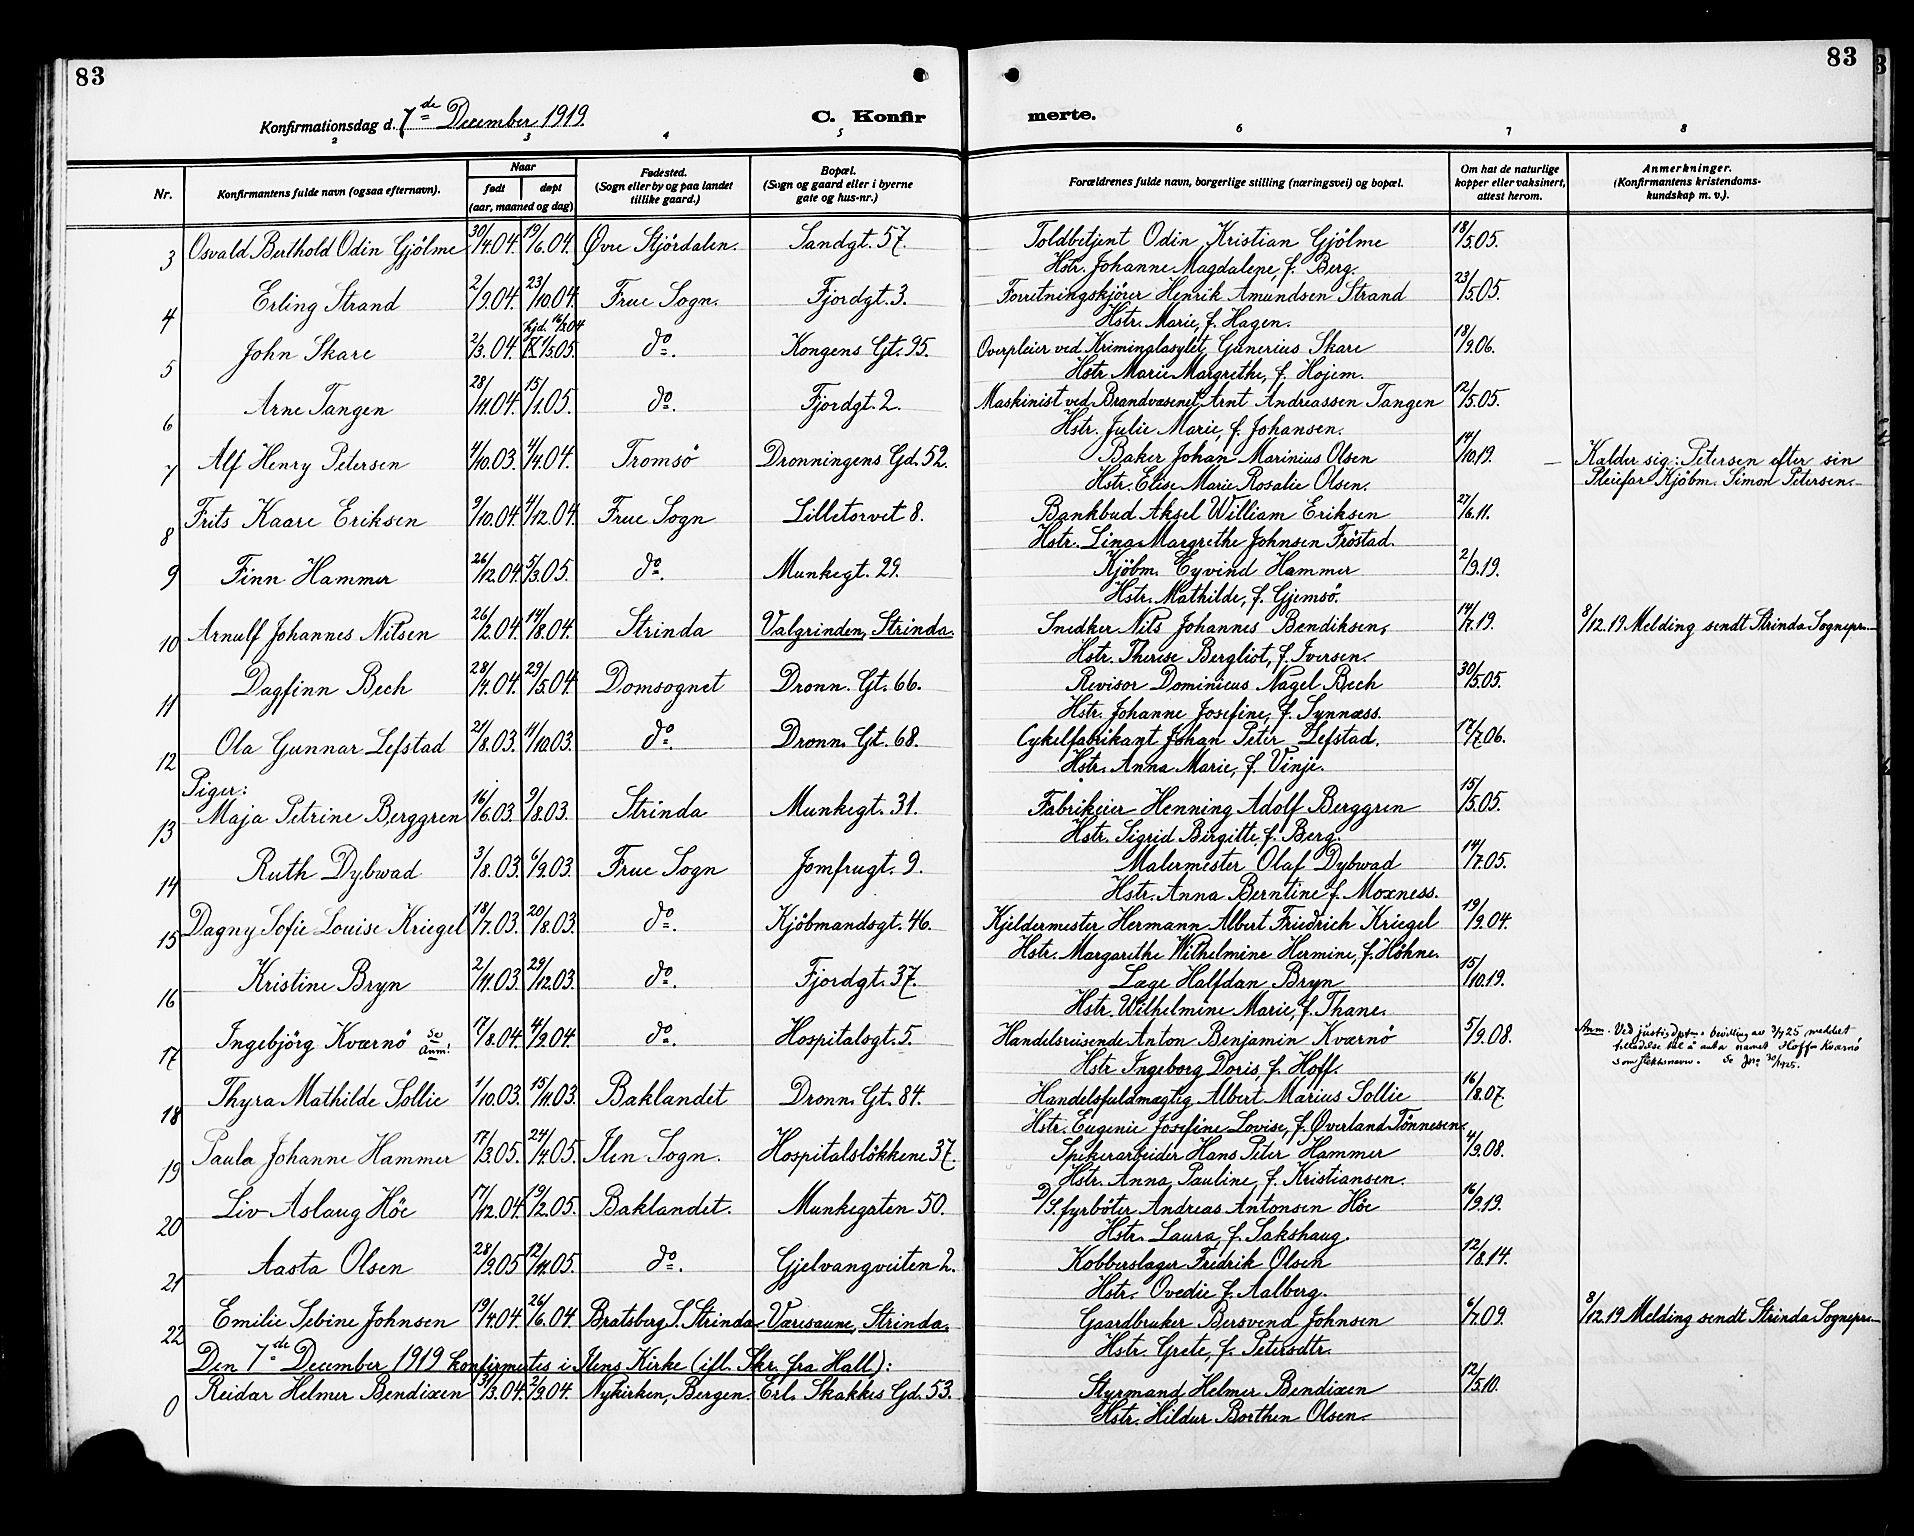 83
83
Konfirmationsdag d. 7de December 1919.
C. Konfir
merte.
2 3 4 5 6 7 8
Nr. Konfirmantens fulde navn (ogsaa efternavn). Naar født døpt (aar, maaned og dag) Fødested. (Sogn eller by og paa landet tillike gaard.) Bopæl. (Sogn og gaard eller i byerne gate og hus-nr.) Forældrenes fulde navn, borgerlige stilling (næringsvei) og bopæl. Om hat de naturlige kopper eller vaksinert, attest herom. Anmerkninger. (Konfirmantens kristendoms-kundskap m. v.).
3 Osvald Berthold Odin Gjölme 30/4.04. 19/6.04. Øvre Stjördalen. Sandgt. 57. Toldbetjent Odin Kristian Gjölme 18/5.05.
Hstr. Johanne Magdalene, f. Berg.
4 Erling Strand 2/9.04. 23/10.04. Frue Sogn. Fjordgt. 3. Forretningskjörer Henrik Amundsen Strand 23/5.05.
Hstr. Marie, f. Hagen.
5 John Skare 2/3.04. hjd. 16/3.04 K 1/5.05. do. Kongens Gt. 95. Overpleier ved Kriminalasylet, Gunerius Skare 18/9.06.
Hstr. Marie Margrethe, f. Hojem.
6 Arne Tangen 28/11.04. 15/1.05. do. Fjordgt. 2. Maskinist ved Brandvæsenet, Arnt Andreassen Tangen 12/5.05.
Hstr. Julie Marie, f. Johansen.
7 Alf Henry Petersen 4/10.03. 4/4.04. Tromsö Dronningens Gd. 52. Baker Johan Marinius Olsen 14/10.19. Kalder sig: Petersen efter sin
Hstr. Elise Marie Rosalie Olsen. Pleiefar Kjöbm. Simon Petersen.
8 Frits Kaare Eriksen 9/10.04. 4/12.04. Frue Sogn Lilletorvet 8. Bankbud Aksel William Eriksen 27/6.11.
Hstr. Lina Margrethe Johnsen Fröstad.
9 Finn Hammer 26/12.04. 5/3.05. do. Munkegt. 29. Kjöbm. Eyvind Hammer 2/9.19.
Hstr. Mathilde, f. Gjemsö.
10 Arnulf Johannes Nilsen 26/2.04. 14/8.04. Strinda Valgrinden, Strinda. Snedker Nils Johannes Bendiksen, 14/7.19. 8/12.19 Melding sendt Strinda Sognepr.
Hstr. Therese Bergliot, f. Iversen.
11 Dagfinn Bech 28/4.04. 29/5.04. Domsognet Dronn. Gt. 66. Revisor Dominicus Nagel Bech 30/5.05.
Hstr. Johanne Josefine, f. Synnæss.
12 Ola Gunnar Lefstad 21/8.03. 11/10.03. do. Dronn. Gt. 68. Cykelfabrikant Johan Peter Lefstad. 17/7.06.
Hstr. Anna Marie, f. Vinje.
Piger:
13 Maja Petrine Berggren 16/6.03. 9/8.03. Strinda Munkegt. 31. Fabrikeier Henning Adolf Berggren 15/5.05.
Hstr. Sigrid Birgitte, f. Berg.
14 Ruth Dybwad 3/8.03. 6/9.03. Frue Sogn Jomfrugt. 9. Malermester Olaf Dybwad 14/7.05.
Hstr. Anna Berntine f. Moxness.
15 Dagny Sofie Louise Kriegel 18/7.03. 20/8.03. do. Kjöbmandsgt. 46. Kjeldermester Hermann Albert Friedrich Kriegel 19/9.04.
Hstr. Margarethe Wilhelmine Hermine, f. Höhne.
16 Kristine Bryn 2/11.03. 29/12.03. do. Fjordgt. 37. Læge Halfdan Bryn 15/10.19.
Hstr. Wilhelmine Marie, f. Thane.
17 Ingebjörg Kværnö se Anm! 7/8.04. 4/9.04. do. Hospitalsgt. 5. Handelsreisende Anton Benjamin Kværnö 5/9.08. Anm. Ved justisdptm.s bevilling av 3/7 25 meddelt
tilladelse til å anta navnet Hoff-Kværnö
Hstr. Ingeborg Doris, f. Hoff. som slektsnavn. Se Jnr. 30/1925.
18 Thyra Mathilde Sollie 1/10.03. 15/11.03. Baklandet Dronn. Gt. 84. Handelsfuldmægtig Albert Marius Sollie 16/8.07.
Hstr. Eugenie Josefine Lovise, f. Øverland Tönnesen.
19 Paula Johanne Hammer 17/3.05. 24/4.05. Ilen Sogn. Hospitalslökkene 37. Spikerarbeider Hans Peter Hammer 4/9.08.
Hstr. Anna Pauline, f. Kristiansen.
20 Liv Aslaug Höe 17/12.04. 19/2.05. Baklandet. Munkegaten 50. D/S. fyrböter Andreas Antonsen Höe 16/9.19.
Hstr. Laura, f. Sakshaug.
21 Aasta Olsen 28/9.05 12/11.05. do. Gjelvangveiten 2. Kobberslager Fredrik Olsen 12/8.14.
Hstr. Ovedie f. Aalberg.
22 Emilie Sebine Johnsen 19/4.04. 26/6.04. Bratsberg S. Strinda Væresaune, Strinda. Gaardbruker Bersvend Johnsen 6/7.09. 8/12.19 Melding sendt Strinda Sognepr.
Hstr. Grete, f. Petersdtr.
Den 7de December 1919 konfirmertes i Ilens Kirke (ifl. Skr. fra Hall):
0 Reidar Helmer Bendixen 31/3.04. 2/9.04. Nykirken, Bergen. Erl. Skakkes Gd. 53. Styrmand Helmer Bendixen 12/5.10.
Hstr. Hildur Borthen Olsen.